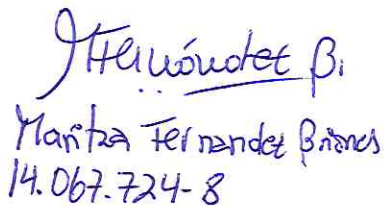 MFernández B.
Maritza Fernandez Briones
14.067.724-8